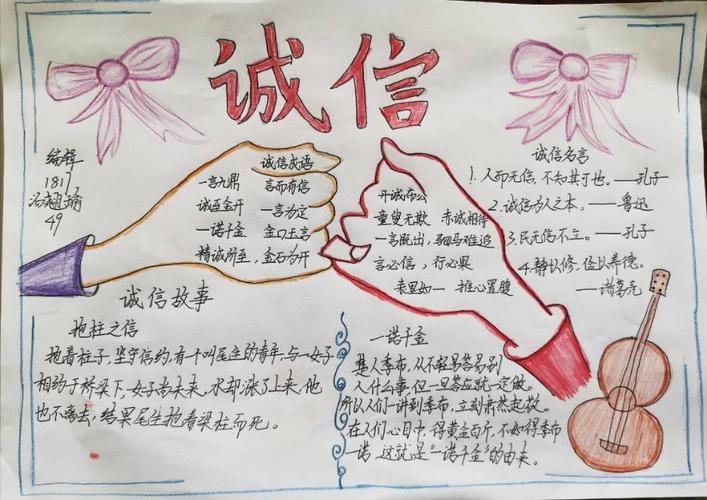 诚信
编辑
1811
49
诚信成语
一言九鼎 言而有信
诚至金开 一言为定
一诺千金 金口玉言
精诚所至，金石为开
开诚布公
童叟无欺 赤诚相待
一言既出，驷马难追
言必信，行必果
表里如一 推心置腹
诚信名言
1.人而无信，不知其可也。——孔子
2.诚信为人之本。——鲁迅
3.民无信不立。——孔子
4.静以修，俭以养德。
——诸葛亮
诚信故事
抱柱之信
抱着柱子，坚守信约，有个叫尾生的青年，与一女子
相约于桥梁下，女子尚未来，水却涨了上来，他
也不离去，结果尾生抱着梁柱而死。
一诺千金
楚人季布，从不轻易答易别
人什么事，但一旦答应就一定做。
所以人们一讲到季布，立刻肃然起敬。
在人们心目中，得黄金百斤，不如得季布
一诺，这就是“一诺千金”的由来。